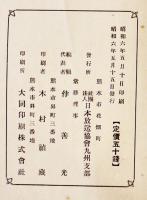 昭和六年五月十日印刷
昭和六年五月十五日發行
【定價五十錢】
熊本市花畑町
發行所
社團法人
日本放送協會九州支部
常務理事
編輯兼代表者
伴善光
熊本市昇町三番地
印刷者
木村禎蔵
熊本市昇町三番地
印刷所
大同印刷株式會社